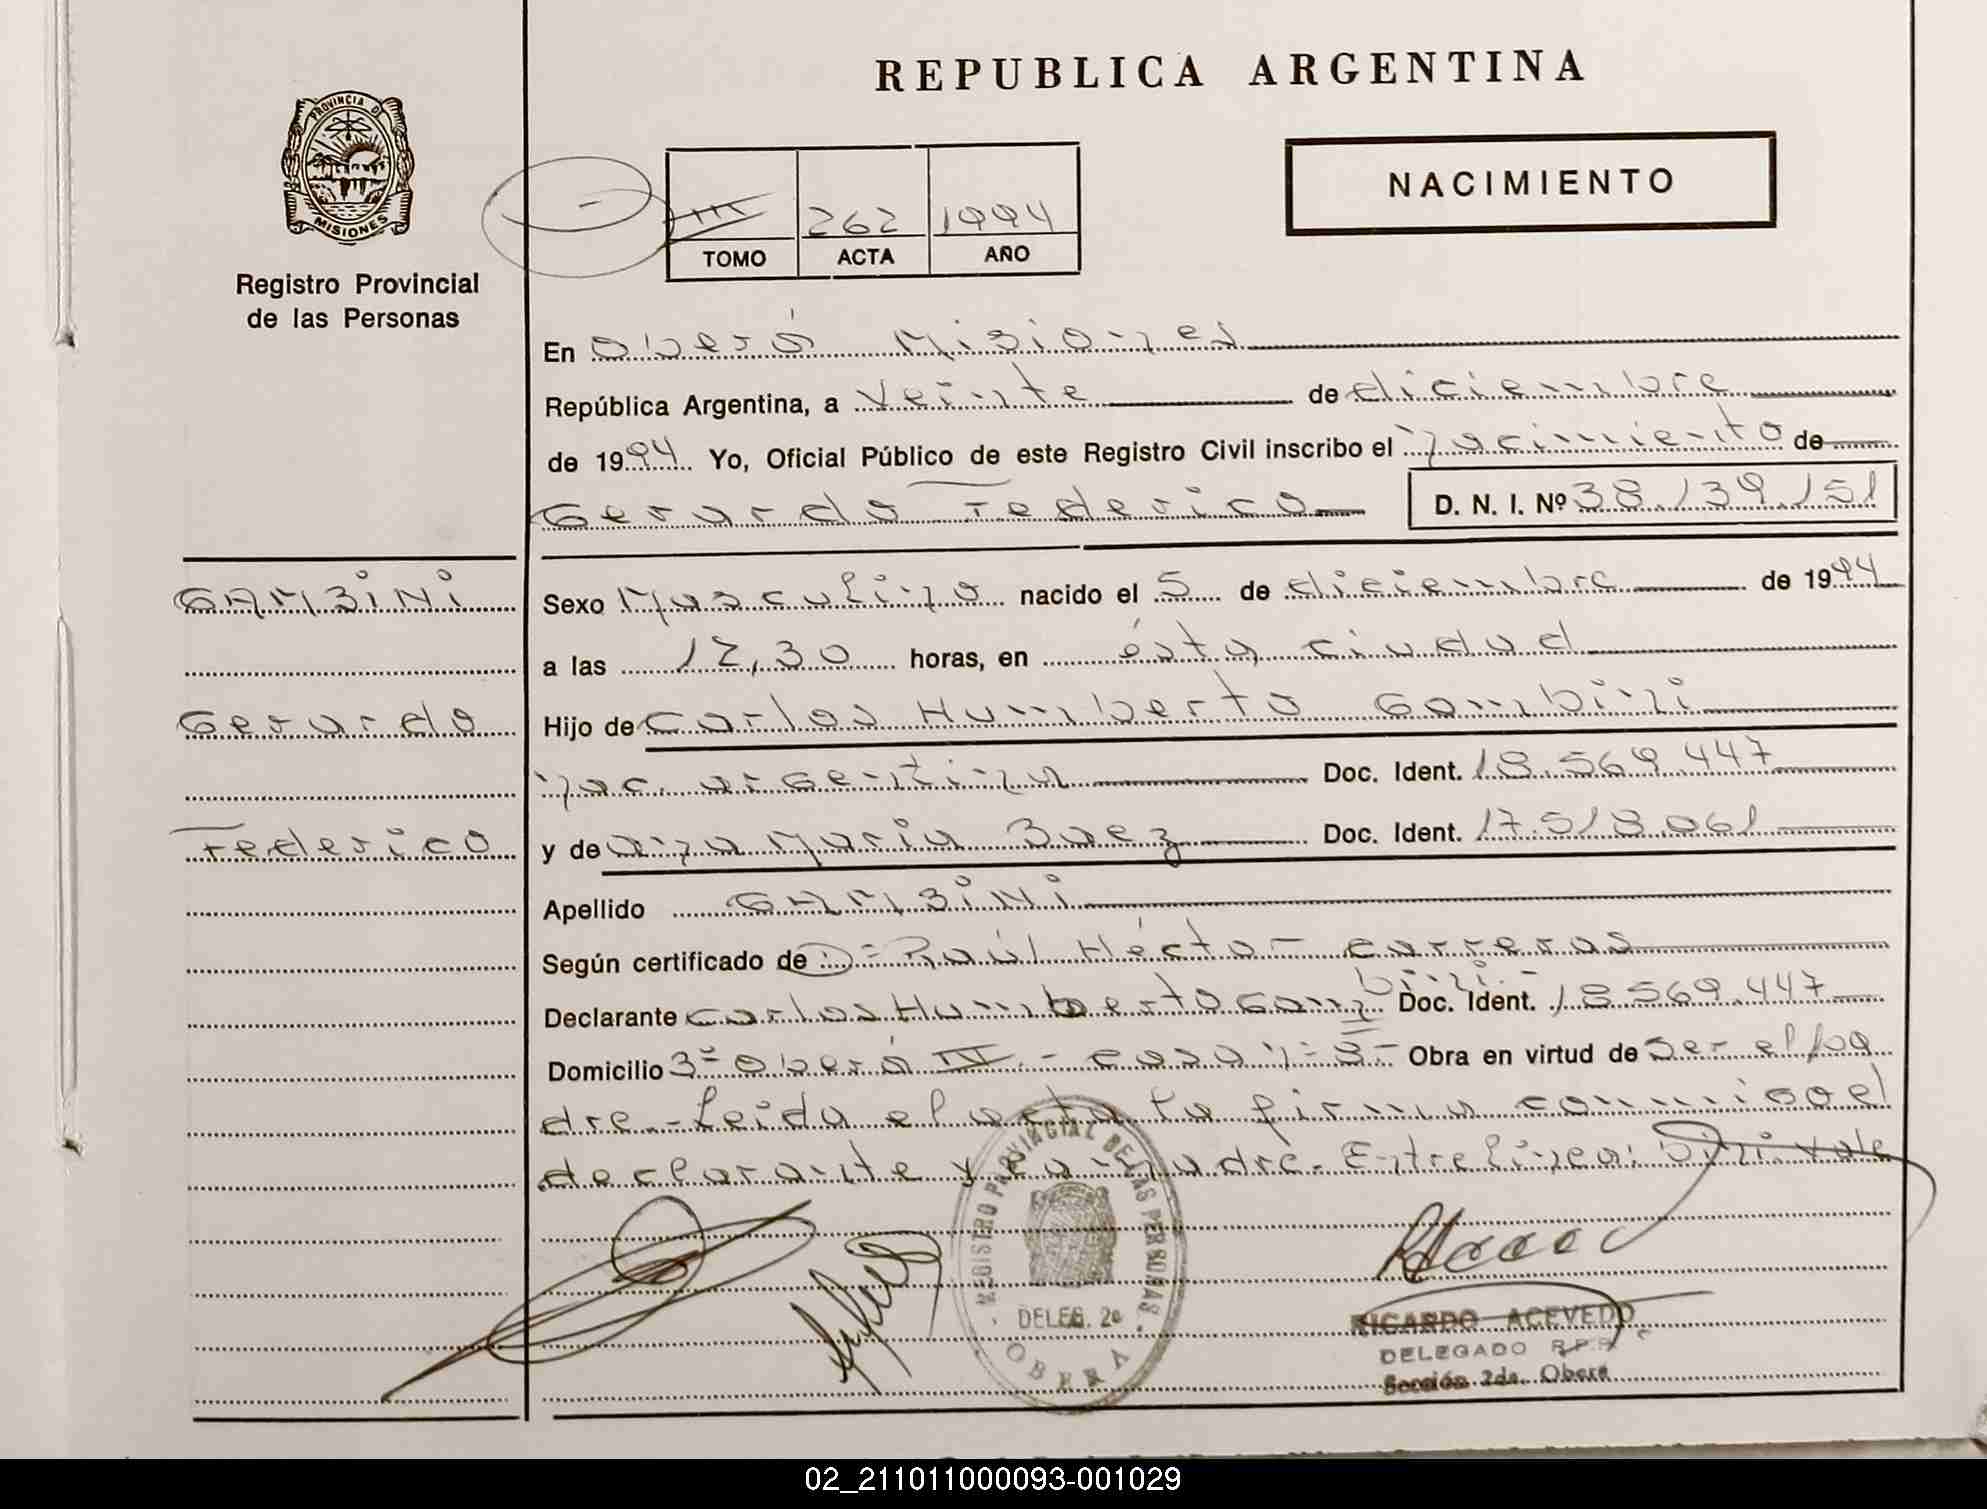 REPUBLICA ARGENTINA
PROVINCIA DE
MISIONES
NACIMIENTO
III 262 1994
TOMO ACTA AÑO
Registro Provincial
de las Personas
En Oberá Misiones
República Argentina, a Veinte de diciembre
de 1994 Yo, Oficial Público de este Registro Civil inscribo el nacimiento de
Gerardo Federico D. N. I. Nº 38.139.151
GAMBINI
Sexo Masculino nacido el 5 de diciembre de 1994
a las 12,30 horas, en ésta ciudad
Gerardo
Hijo de Carlos Humberto Gambini
nac. argentina Doc. Ident. 18.569.447
Federico
y de ana Maria Baez Doc. Ident. 17.518.061
Apellido GAMBINI
Según certificado de D= Raúl Héctor Carreras
bini.-
Declarante Carlos Humberto Gam Doc. Ident. 18569.447
Domicilio 3= Oberá IV.- casa n=8- Obra en virtud de Ser el pa
dre.- Leida el acta la firma conmigo el
declarante y la madre. Entrelinea: bini. vale
REGISTRO PROVINCIAL DE LAS PERSONAS
DELEG. 2a
OBERA
RICARDO ACEVEDO
DELEGADO R.P.P.
Sección 2da. Oberá
02_211011000093-001029